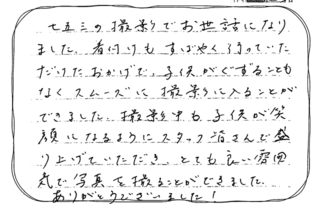 七五三の撮影でお世話になり
ました。着付けもすばやく行っていた
だけたおかげで、子供がぐずることも
なくスムーズに撮影に入ることが
できました。撮影中も子供が笑
顔になるようにスタッフ皆さんで盛
り上げていただき、とても良い雰囲
気で写真を撮ることができました。
ありがとうございました!